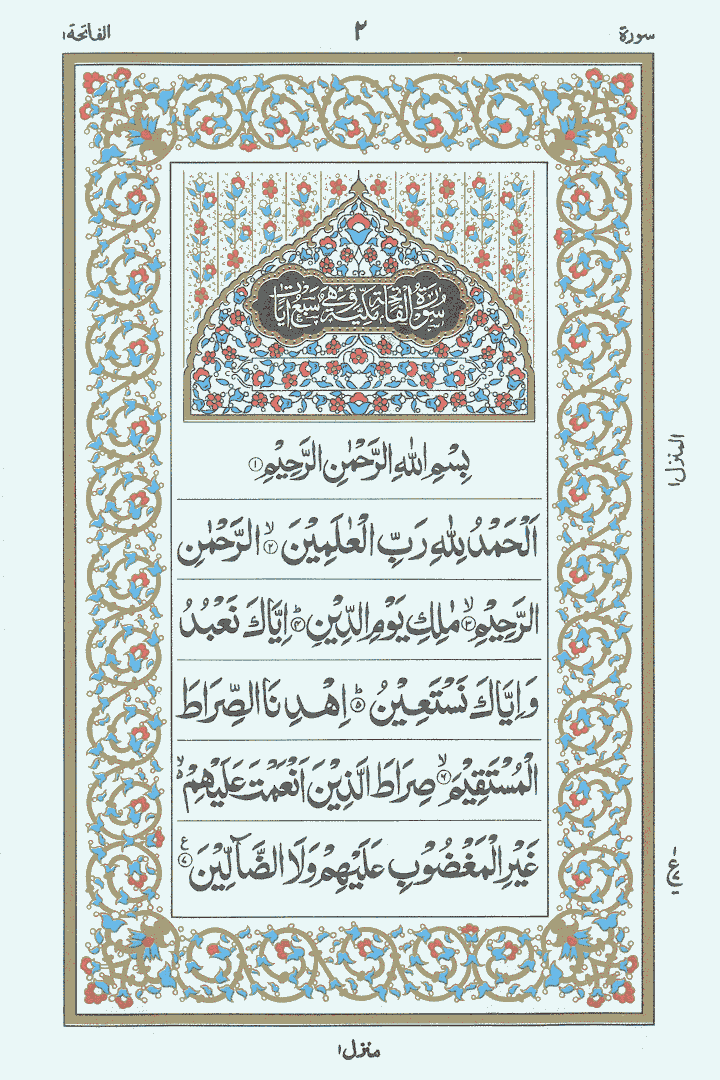 سورة ٢ الفاتحة ١
سُوْرَةُ الْفَاتِحَةِ مَكِّيَّةٌ وَّهِيَ سَبْعُ اٰيَاتٍ
بِسْمِ اللهِ الرَّحْمٰنِ الرَّحِيْمِ ۝١
اَلْحَمْدُ لِلّٰهِ رَبِّ الْعٰلَمِيْنَ ۙ۝٢ الرَّحْمٰنِ
الرَّحِيْمِ ۙ۝٣ مٰلِكِ يَوْمِ الدِّيْنِ ؕ۝٤ اِيَّاكَ نَعْبُدُ
وَاِيَّاكَ نَسْتَعِيْنُ ؕ۝٥ اِهْدِنَا الصِّرَاطَ
الْمُسْتَقِيْمَ ۙ۝٦ صِرَاطَ الَّذِيْنَ اَنْعَمْتَ عَلَيْهِمْ ۙ
غَيْرِ الْمَغْضُوْبِ عَلَيْهِمْ وَلَا الضَّآلِّيْنَ ۝٧ ع
المنزل ١
منزل ١